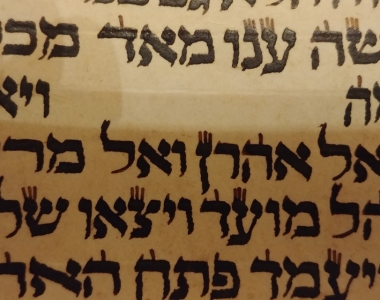 שה ענו מאד מכ
מה ויא
אל אהרן ואל מר
הל מועד ויצאו של
יעמד פתח האה